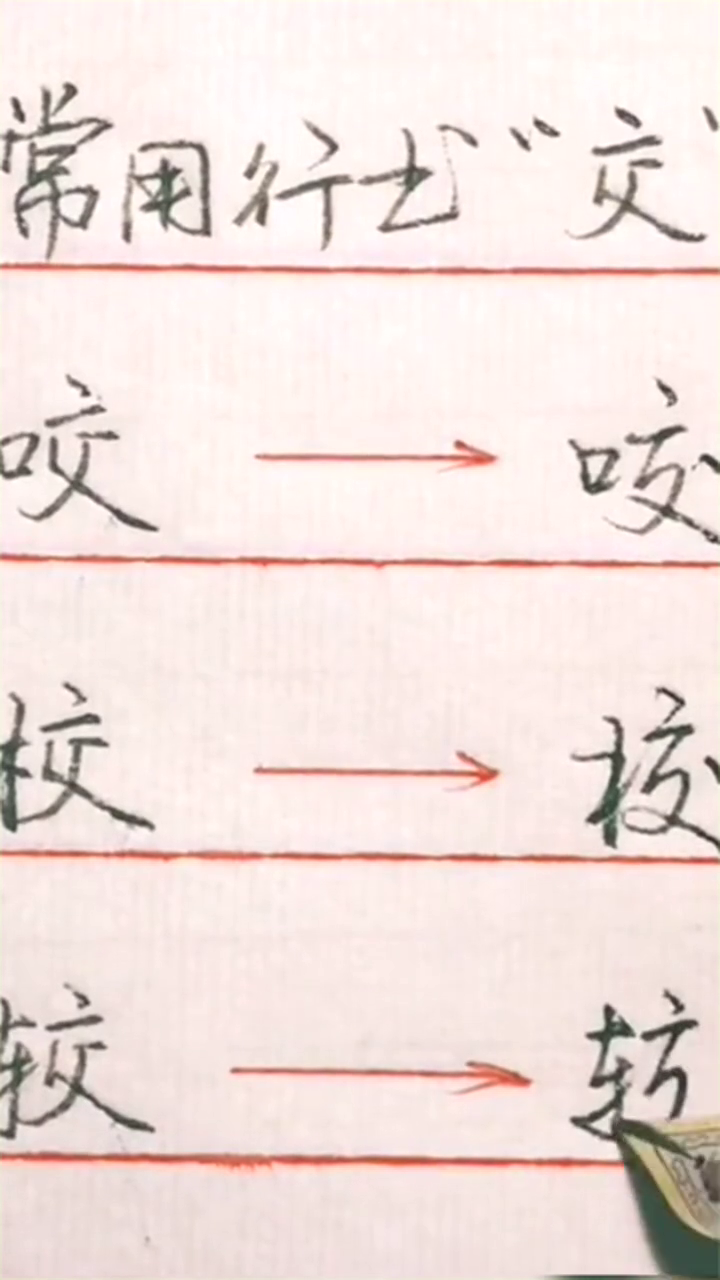 常用行书“交”
咬 → 咬
校 → 校
较 → 较